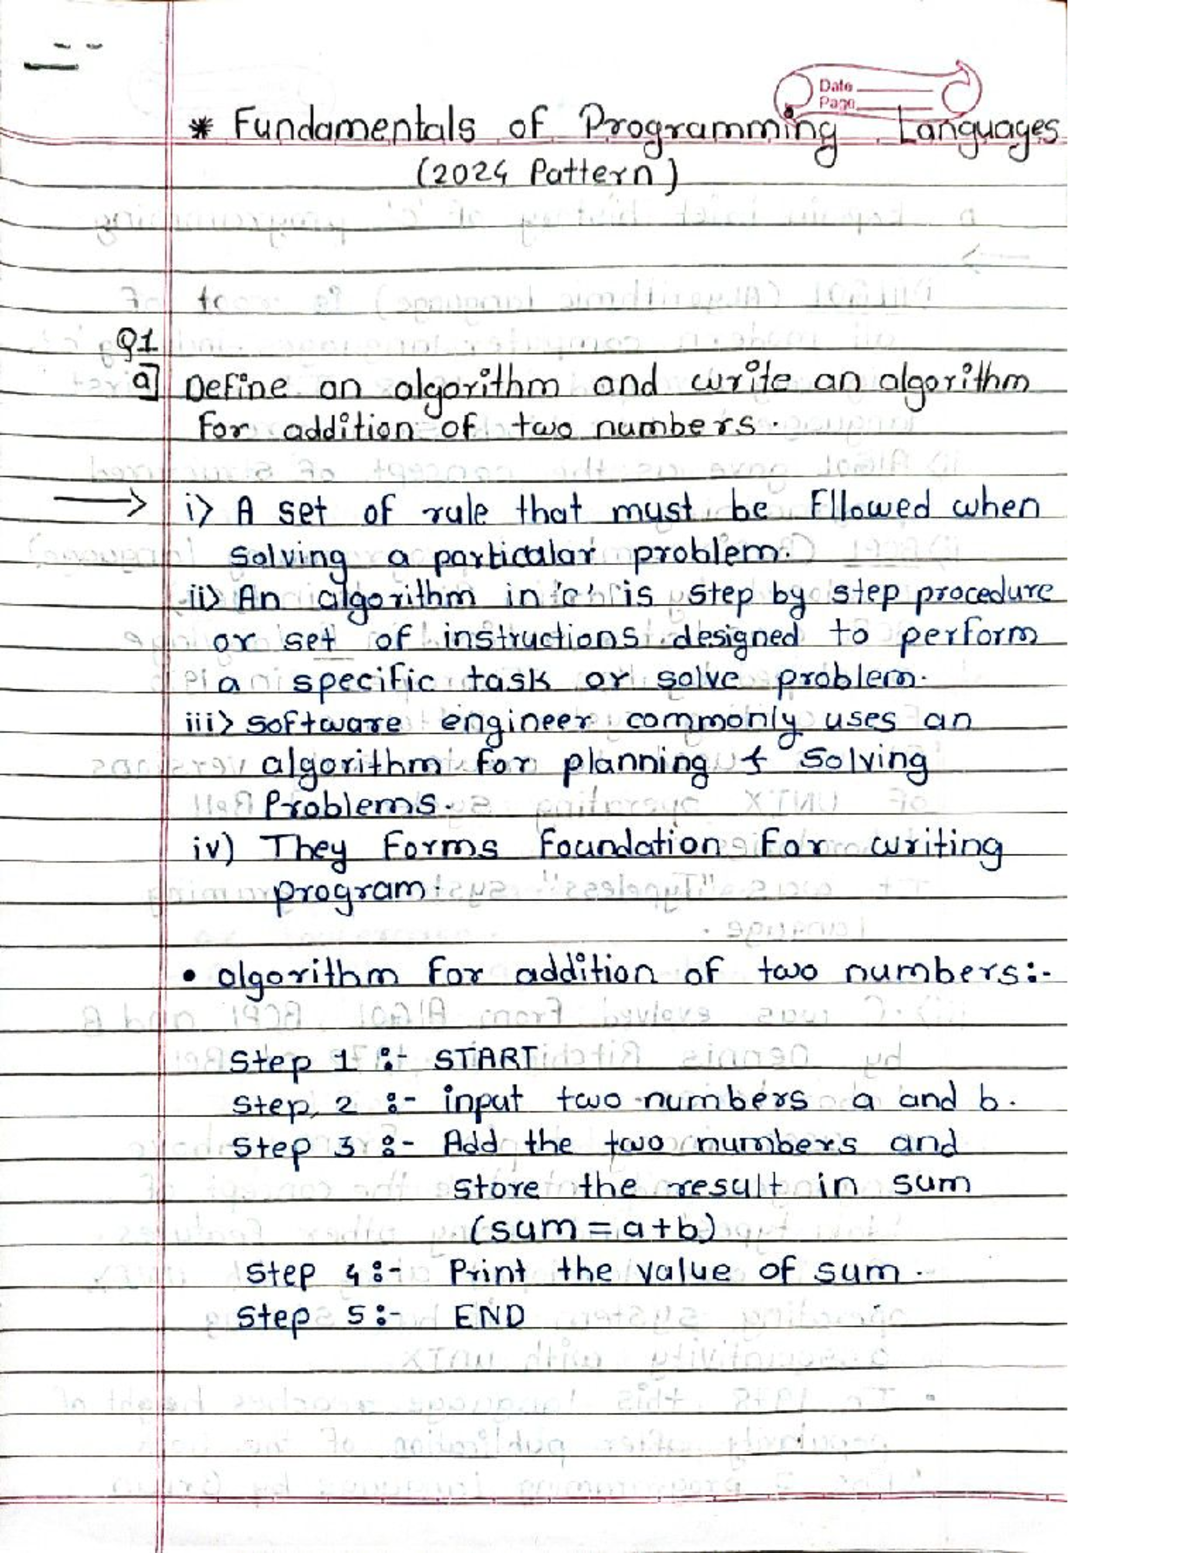 Date
Page
* Fundamentals of Programming Languages
(2024 Pattern)
Q1
a] Define an algorithm and write an algorithm
for addition of two numbers.
→ i) A set of rule that must be Fllowed when
solving a particular problem.
ii) An algorithm in 'c' is step by step procedure
or set of instructions designed to perform
a specific task or solve problem.
iii) software engineer commonly uses an
algorithm for planning & solving
Problems.
iv) They Forms Foundation For writing
program.
• algorithm for addition of two numbers:-
Step 1 :- START
Step 2 :- input two numbers a and b.
Step 3 :- Add the two numbers and
store the result in sum
(sum = a+b)
Step 4 :- Print the value of sum.
Step 5 :- END